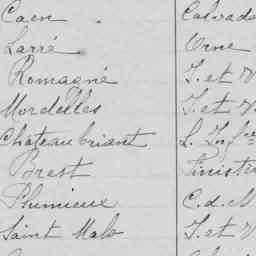 Caen Calvado
Larré Orne
Romagné I. et V
Mordelles I. et V
Chateaubriant L. Infre
Brest Finister
Plumieux C. d. N
Saint Malo I. et V